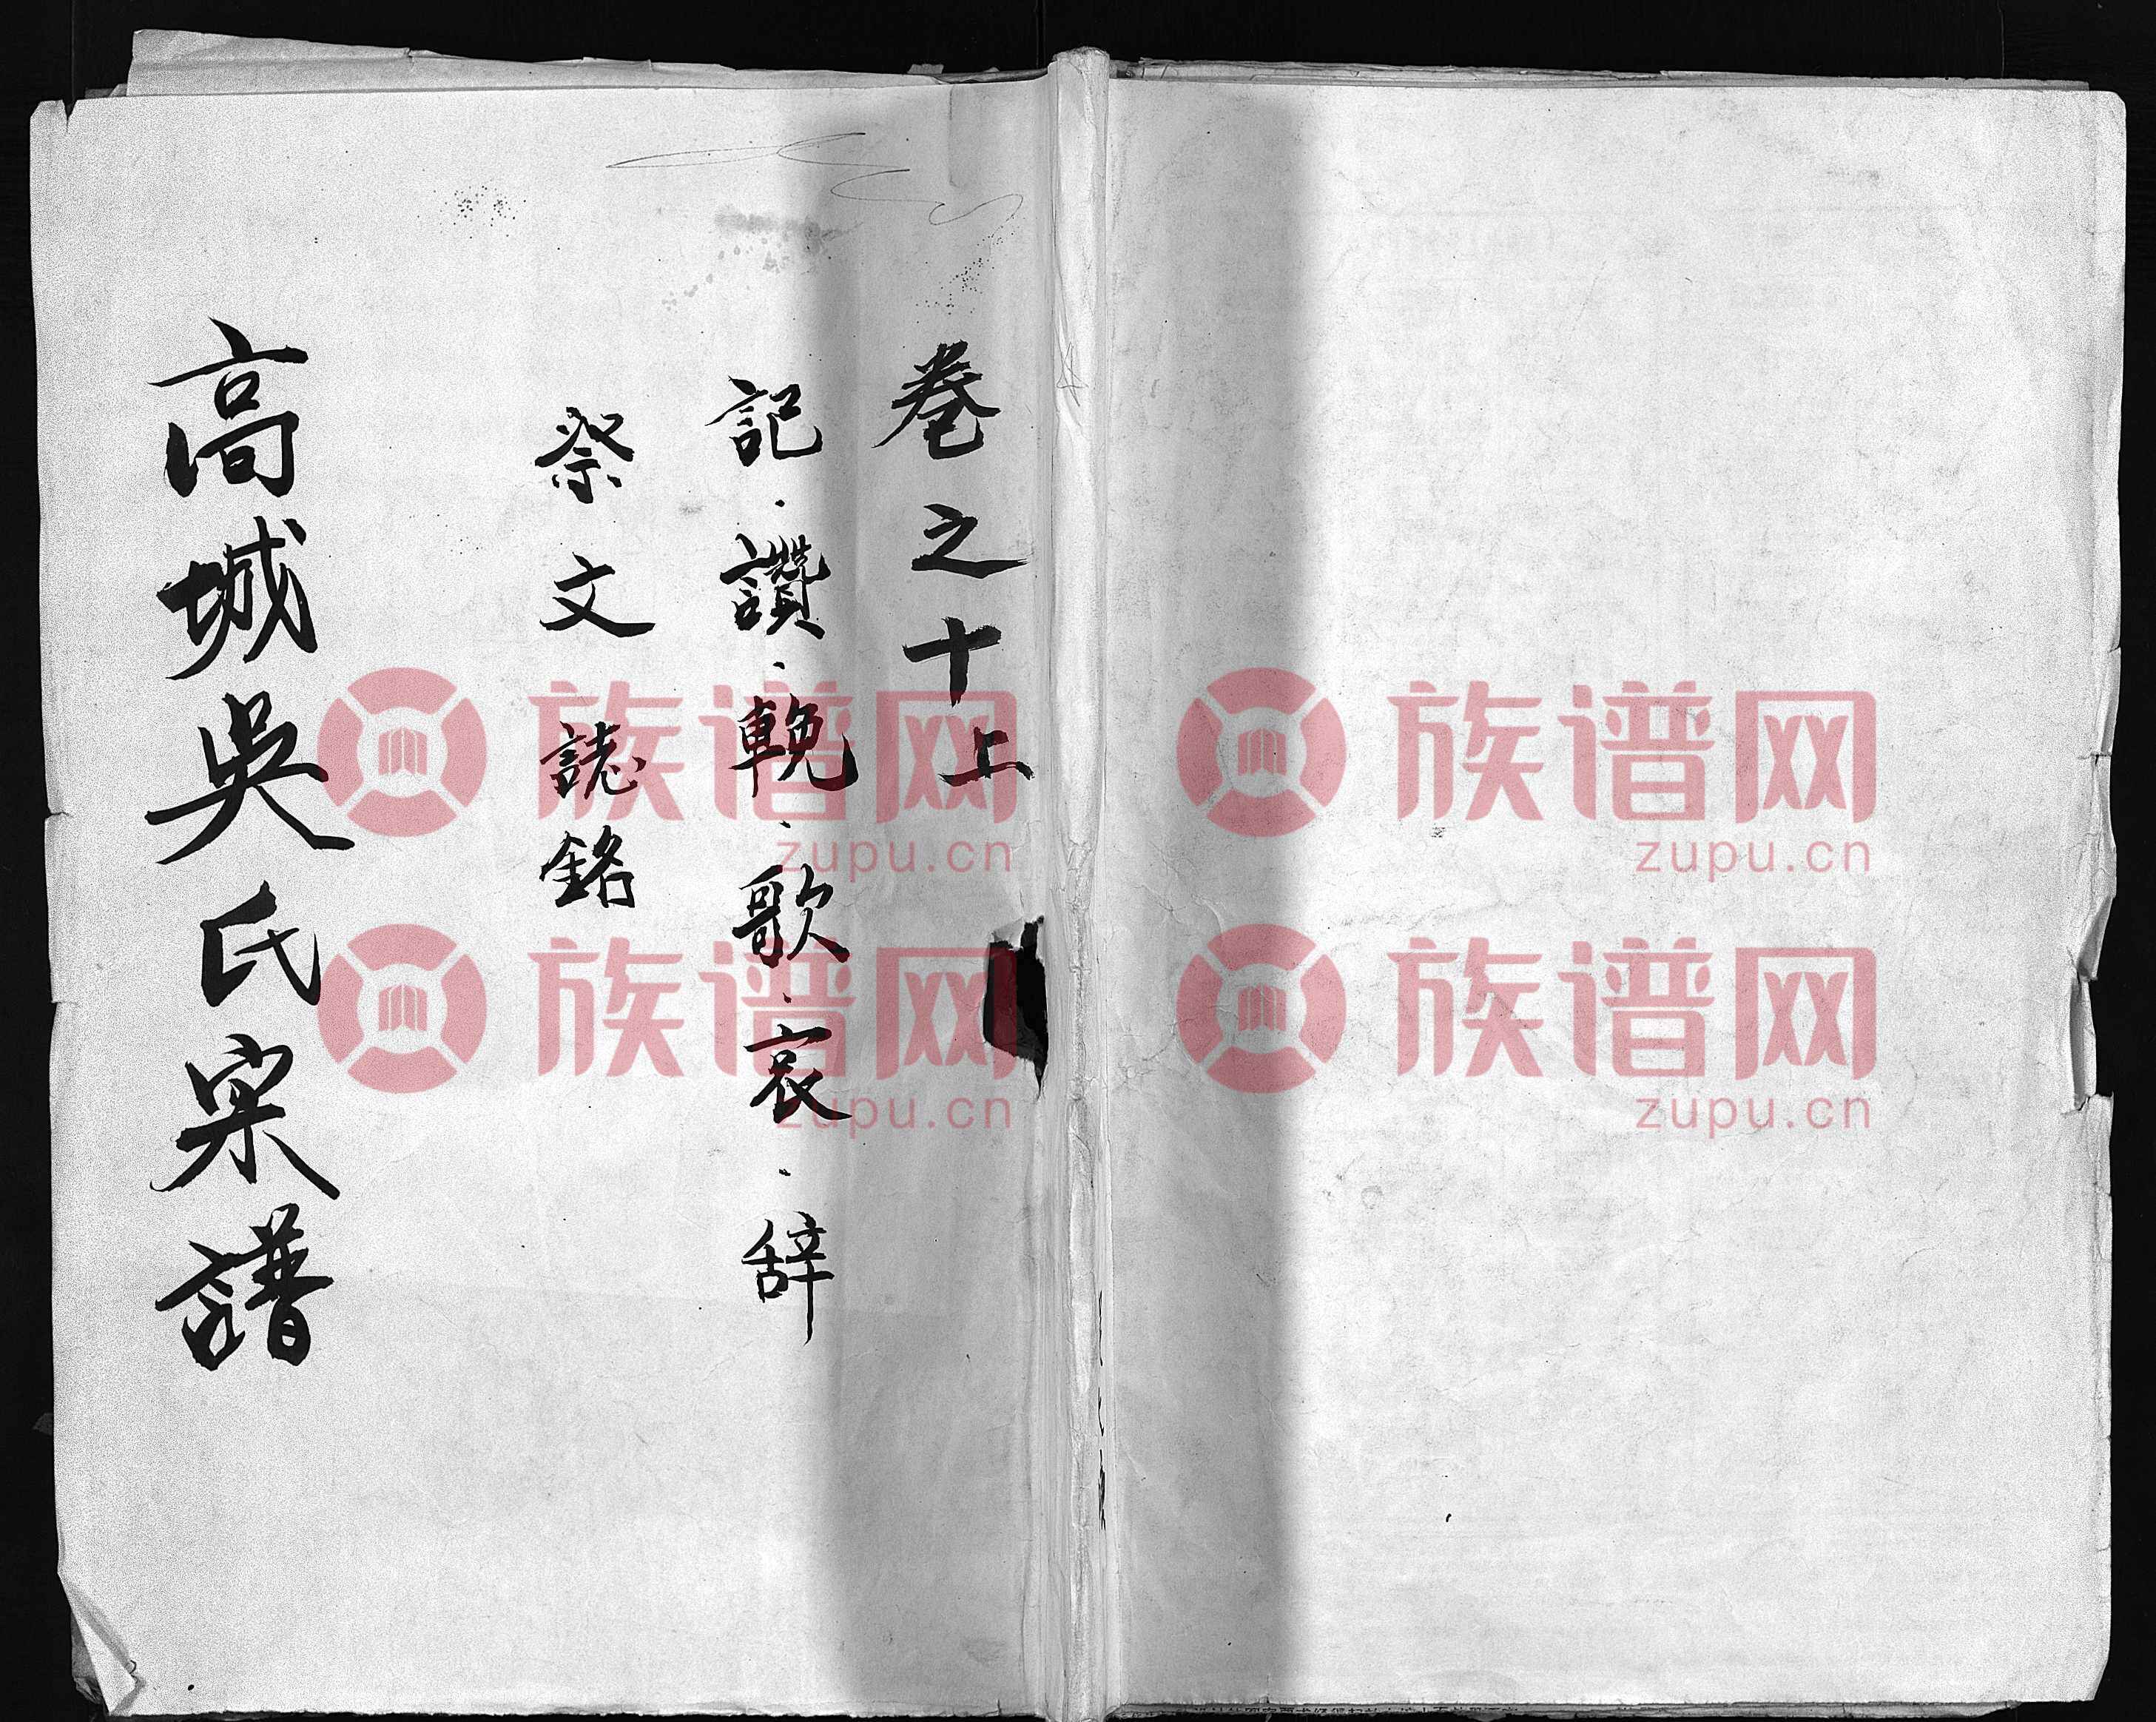 卷之十上
記·讚·輓·歌·哀·辞
祭文誌銘
高城吳氏宗譜
族谱网
zupu.cn
族谱网
zupu.cn
族谱网
zupu.cn
族谱网
zupu.cn